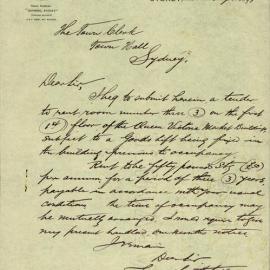 SYDNEY,
The Town Clerk
Town Hall
Sydney.
Dear Sir,
I beg to submit herein a tender
to rent room number three (3) on the first
(1st) floor of the Queen Victoria Market Buildings
subject to a Goods lift being fixed in
the building previous to occupancy
Rent to be fifty pounds Stg (£50)
per annum for a period of three (3) years
payable in accordance with your usual
conditions the time of occupancy may
be mutually arranged. I would require to give
my present landlord one months notice
I remain
Dear Sir